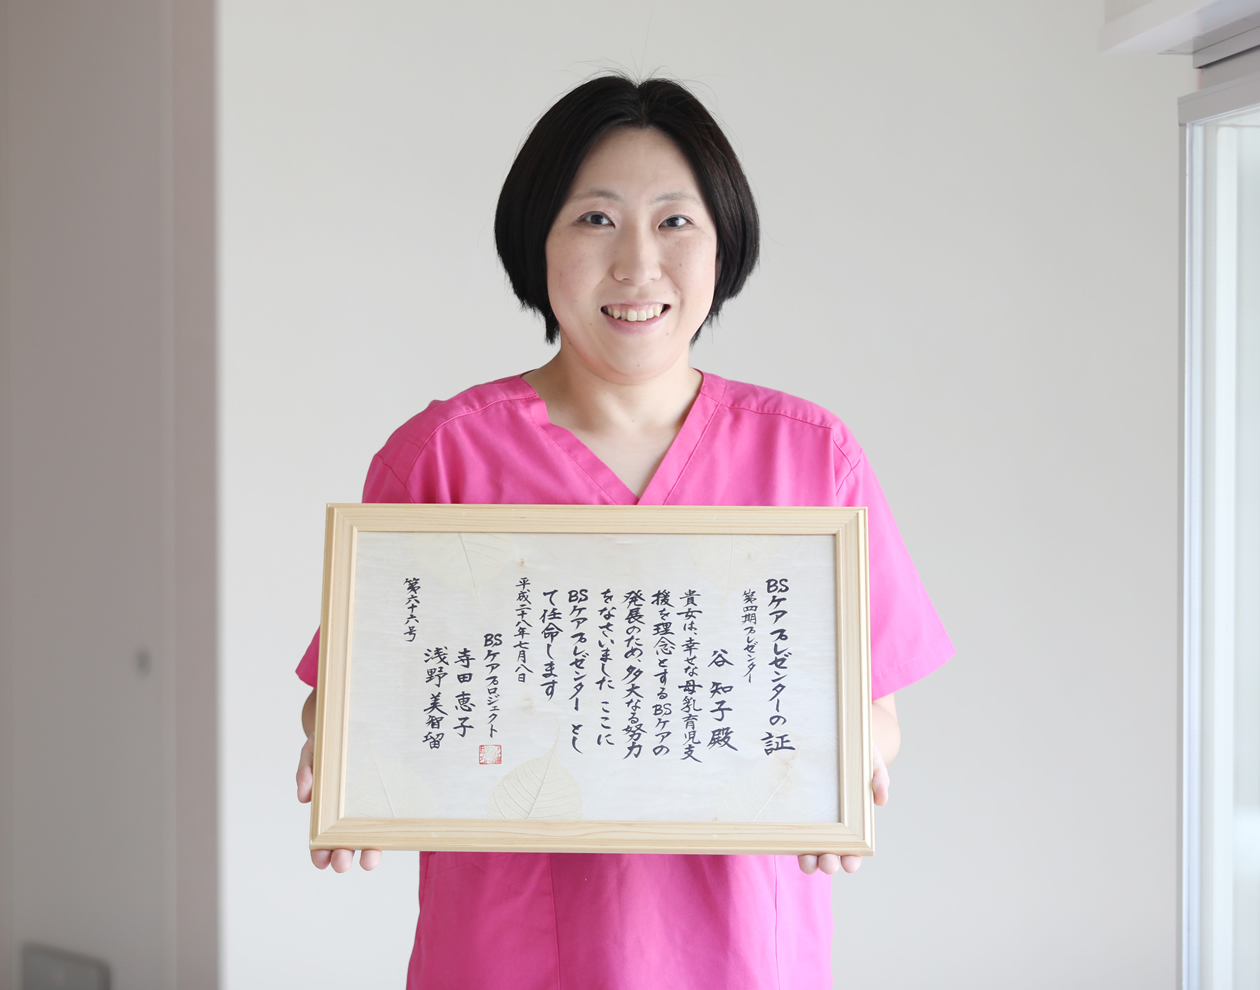 BSケアプレゼンターの証
第四期プレゼンター
谷 知子殿
貴女は、幸せな母乳育児支
援を理念とするBSケアの
発展のため、多大なる努力
をなさいました ここに
BSケアプレゼンター とし
て任命します
平成二十八年七月八日
BSケアプロジェクト
寺田恵子
浅野美智留
第六十六号